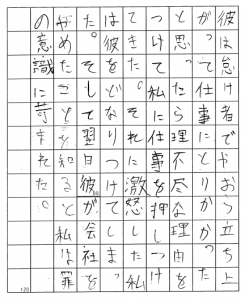 彼は怠け者でやおら立ち上
がって仕事にとりかかった
と思ったら理不尽な理由を
つけて私に仕事を押しつけ
てきた。それに激怒した私
は彼をどなりつけてしまっ
た。そして翌日彼が会社を
やめたことを知ると私は罪
の意識に苛まれた。
120